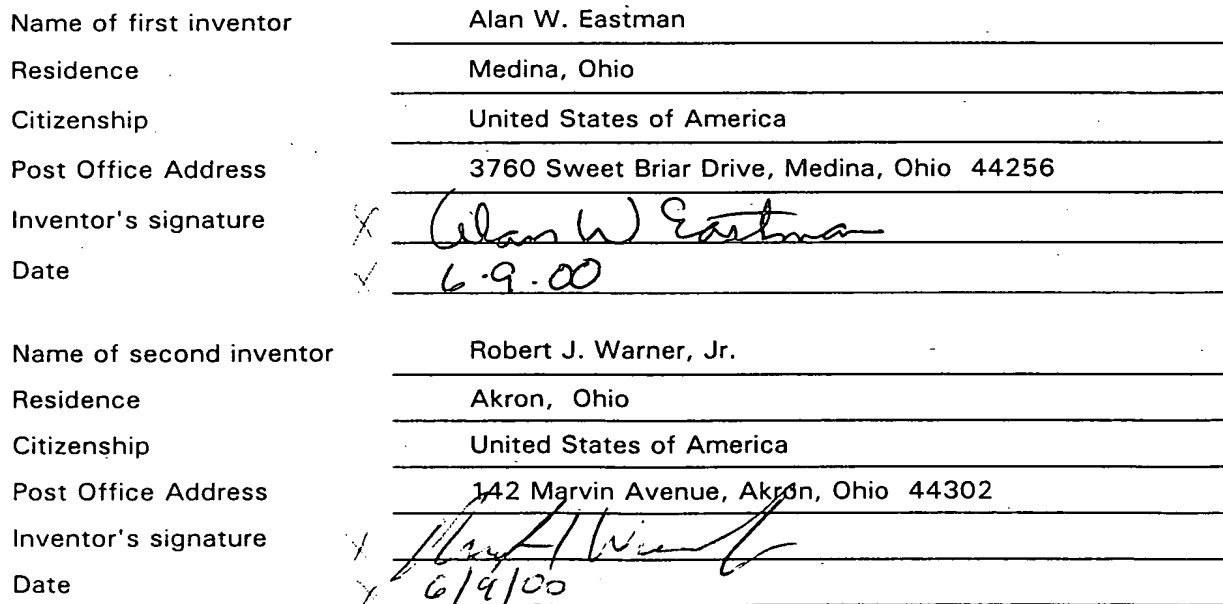 Name of first inventor Alan W. Eastman
Residence Medina, Ohio
Citizenship United States of America
Post Office Address 3760 Sweet Briar Drive, Medina, Ohio 44256
Inventor's signature X Alan W Eastman
Date 6.9.00
Name of second inventor Robert J. Warner, Jr.
Residence Akron, Ohio
Citizenship United States of America
Post Office Address 142 Marvin Avenue, Akron, Ohio 44302
Inventor's signature X
Date X 6/9/00